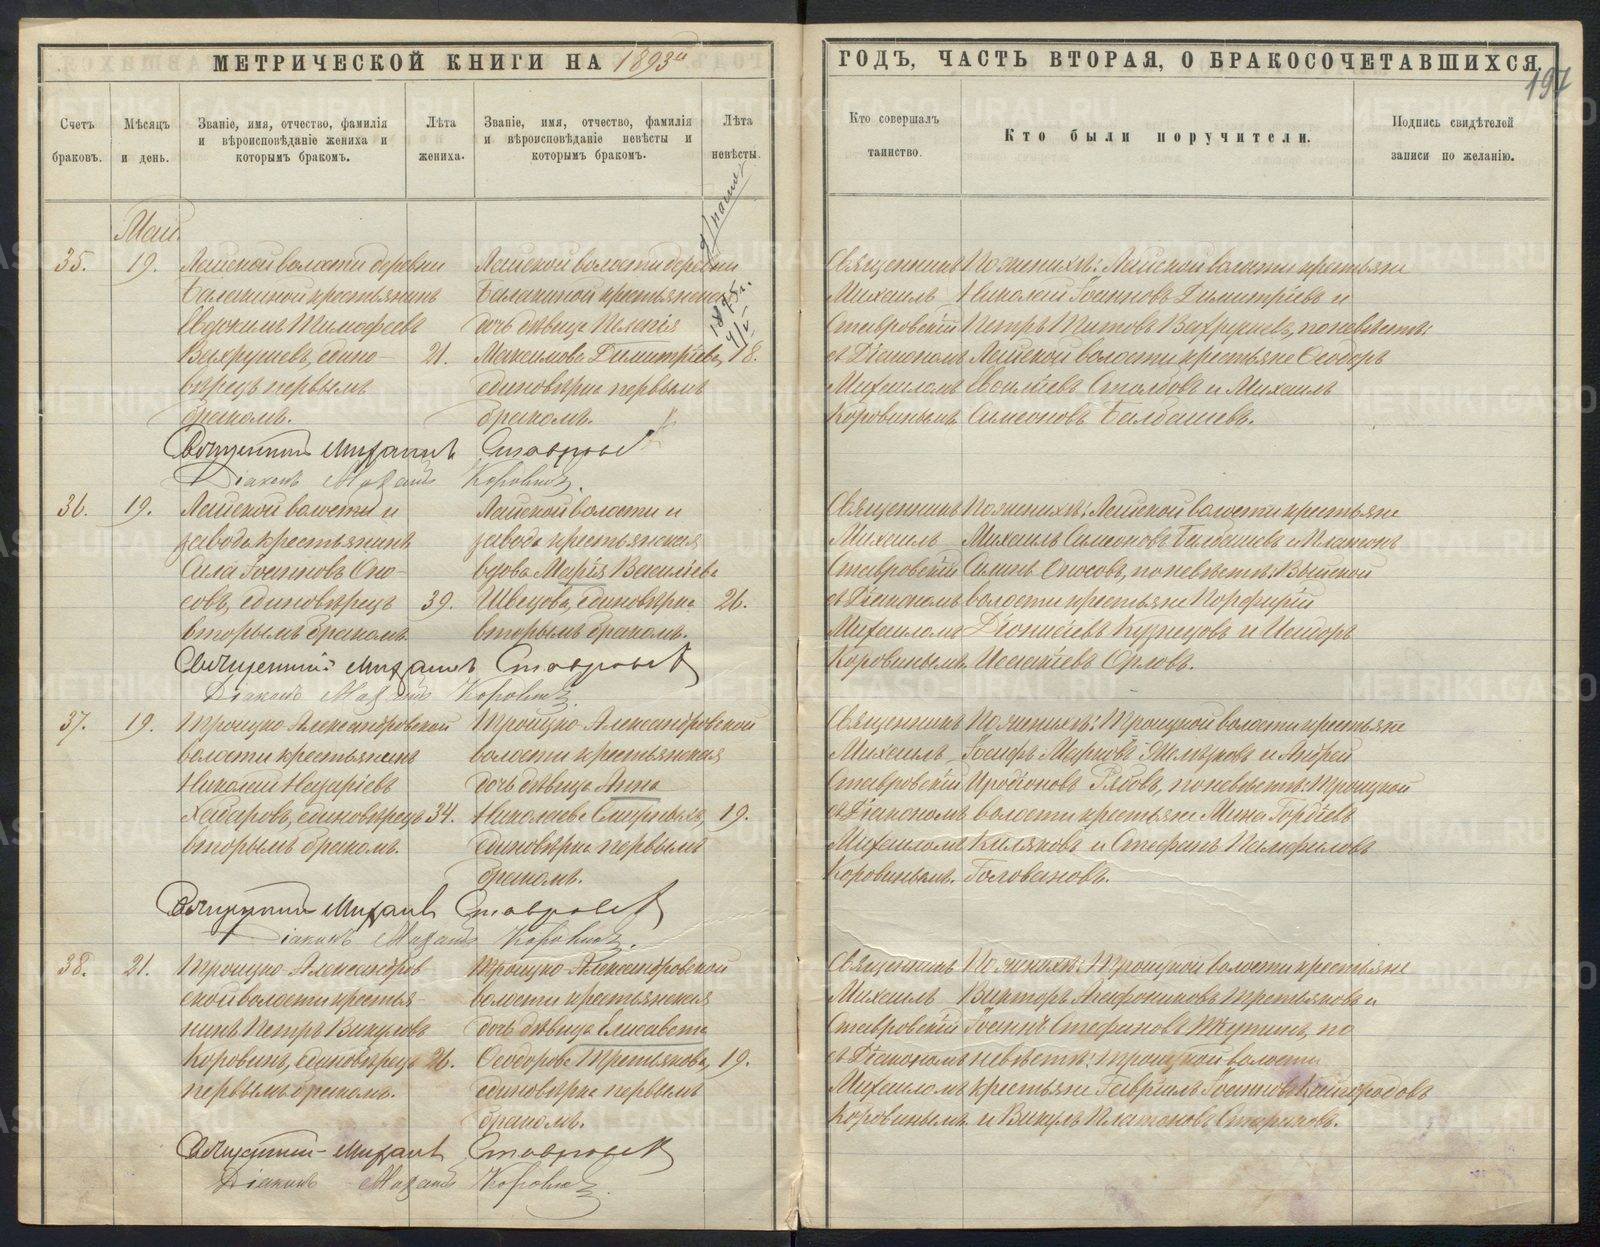 МЕТРИЧЕСКОЙ КНИГИ НА 1893й
Счетъ браковъ.
Мѣсяцъ и день.
Званіе, имя, отчество, фамилія и вѣроисповѣданіе жениха и которымъ бракомъ.
Лѣта жениха.
Званіе, имя, отчество, фамилія и вѣроисповѣданіе невѣсты и которымъ бракомъ.
Лѣта невѣсты.
Май.
35. 19.
Лайской волости деревни
Балакиной крестьянинъ
Евдокимъ Тимофеевъ
Вахрушевъ, едино-
вѣрецъ первымъ
бракомъ.
21.
Лайской волости деревни
Балакиной крестьянская
дочь дѣвица Пелагія
Максимова Димитріева,
единовѣрка первымъ
бракомъ.
18.
1875 г.
Священникъ Михаилъ Ставровскій
Діаконъ Михаилъ Коровинъ.
36. 19.
Лайской волости и
завода крестьянинъ
Сила Іоанновъ Спо-
совъ, единовѣрецъ
вторымъ бракомъ.
39.
Лайской волости и
завода крестьянская
вдова Марія Васильева
Швецова, единовѣрка
вторымъ бракомъ.
26.
Священникъ Михаилъ Ставровскій
Діаконъ Михаилъ Коровинъ.
37. 19.
Троицко-Александровской
волости крестьянинъ
Николай Назаріевъ
Хабаровъ, единовѣрецъ
вторымъ бракомъ.
34.
Троицко-Александровской
волости крестьянская
дочь дѣвица Анна
Николаева
единовѣрка первымъ
бракомъ.
19.
Священникъ Михаилъ Ставровскій
Діаконъ Михаилъ Коровинъ.
38. 21.
Троицко-Александров
ской волости крестья-
нинъ Петръ Викуловъ
Коровинъ, единовѣрецъ
первымъ бракомъ.
26.
Троицко-Александровской
волости крестьянская
дочь дѣвица Елисавета
Ѳеодорова Третьякова,
единовѣрка первымъ
бракомъ.
19.
Священникъ Михаилъ Ставровскій
Діаконъ Михаилъ Коровинъ.
ГОДЪ, ЧАСТЬ ВТОРАЯ, О БРАКОСОЧЕТАВШИХСЯ.
197
Кто совершалъ таинство.
Кто были поручители.
Подпись свидѣтелей записи по желанію.
Священникъ
Михаилъ
Ставровскій
съ Діакономъ
Михаиломъ
Коровинымъ.
По женихѣ: Лайской волости крестьяне
Николай Іоанновъ Димитріевъ и
Петръ Титовъ Вахрушевъ, по невѣстѣ:
Лайской волости крестьяне Ѳеодоръ
Столбовъ и Михаилъ
Симеоновъ Балбашевъ.
Священникъ
Михаилъ
Ставровскій
съ Діакономъ
Михаиломъ
Коровинымъ.
По женихѣ: Лайской волости крестьяне
Михаилъ Симеоновъ Балбашевъ и Платонъ
Силинъ Спосовъ, по невѣстѣ: Выйской
волости крестьяне Порфирій
Діонисіевъ Кузнецовъ и
Исаакіевъ Орловъ.
Священникъ
Михаилъ
Ставровскій
съ Діакономъ
Михаиломъ
Коровинымъ.
По женихѣ: Троицкой волости крестьяне
Іосифъ Марковъ и Андрей
Иродіоновъ по невѣстѣ: Троицкой
волости крестьяне Мина Гордѣевъ
и Стефанъ Памфиловъ
Головановъ.
Священникъ
Михаилъ
Ставровскій
съ Діакономъ
Михаиломъ
Коровинымъ.
По женихѣ: Троицкой волости крестьяне
Викторъ Агафониковъ Третьяковъ и
Іоаннъ Стефановъ по
невѣстѣ: Троицкой волости
крестьяне Гавріилъ Іоанновъ
и Викулъ Платоновъ Стариковъ.
METRIKI.GASO-URAL.RU